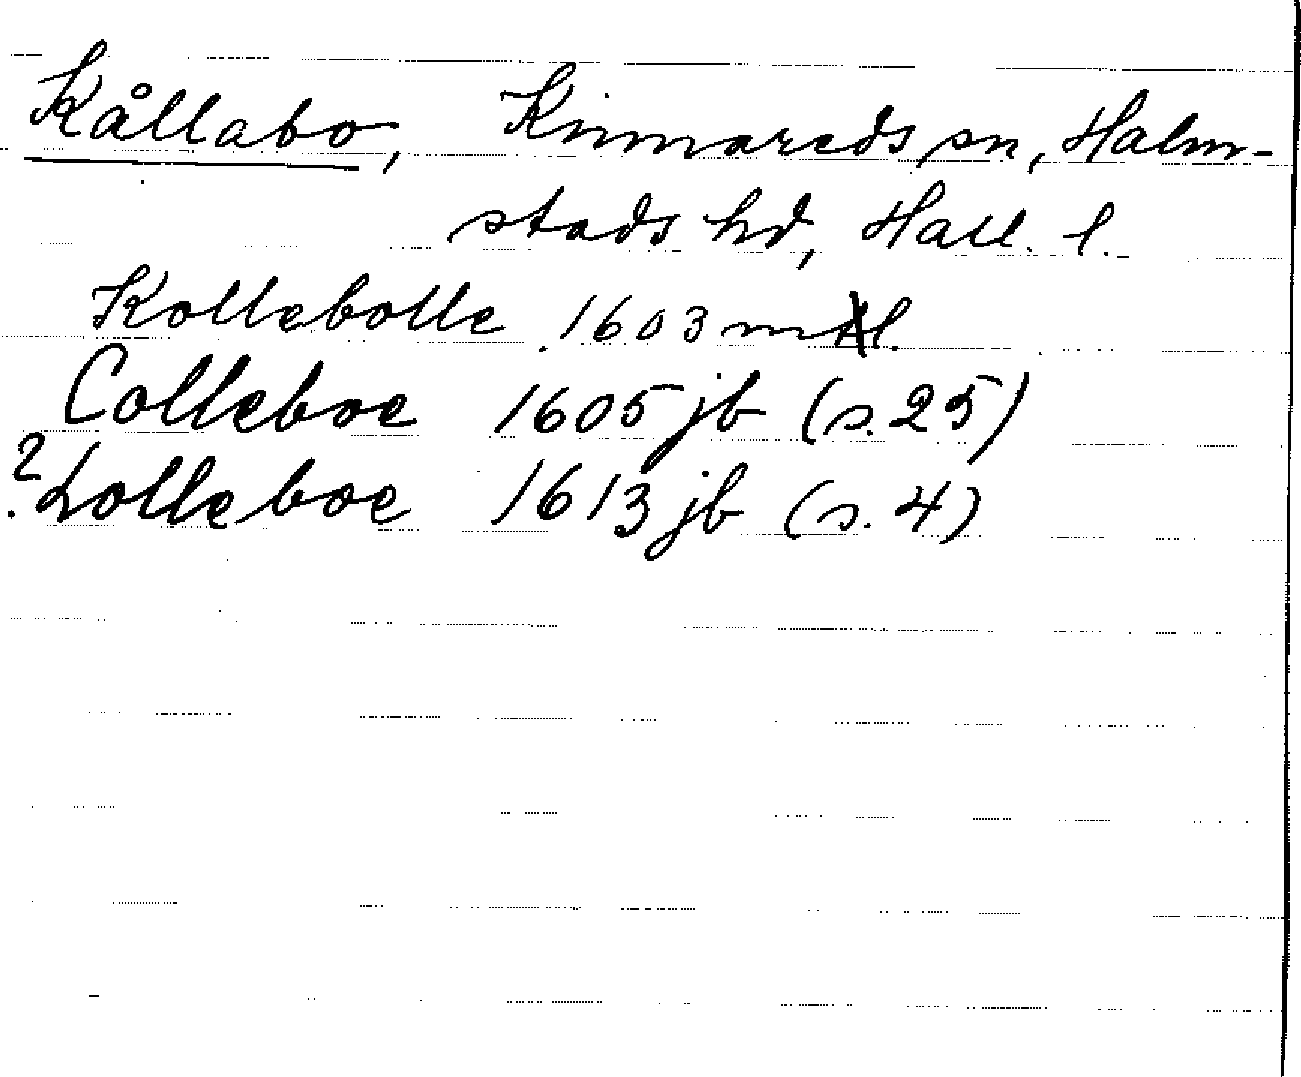 Kållabo, Kinnareds sn, Halm-
stads hd, Hall. l.
Kollebolle 1603 mtl.
Colleboe 1605 jb (s. 25)
? Lolleboe 1613 jb (s. 4)